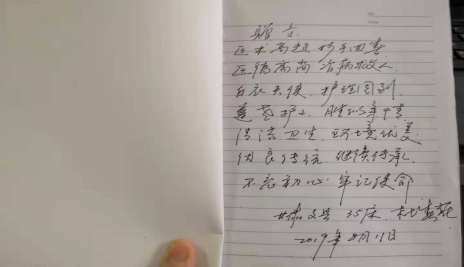 赠言
医术高超 妙手回春
医德高尚 治病救人
白衣天使 护理周到
护士 胜似亲情
清洁卫生 环境优美
优良传统 继续传承
不忘初心 牢记使命
35床
2019年8月11日